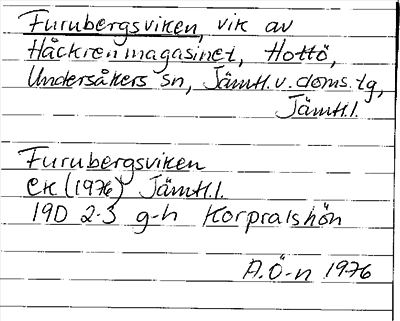 Furubergsviken, vik av
Håckrenmagasinet, Hottö,
Undersåkers sn, Jämtl.v.doms.tg,
Jämtl.l.
Furubergsviken
EK (1976) Jämtl.l.
19D 2-3 g-h Korpralshön
A.Ö-n 1976